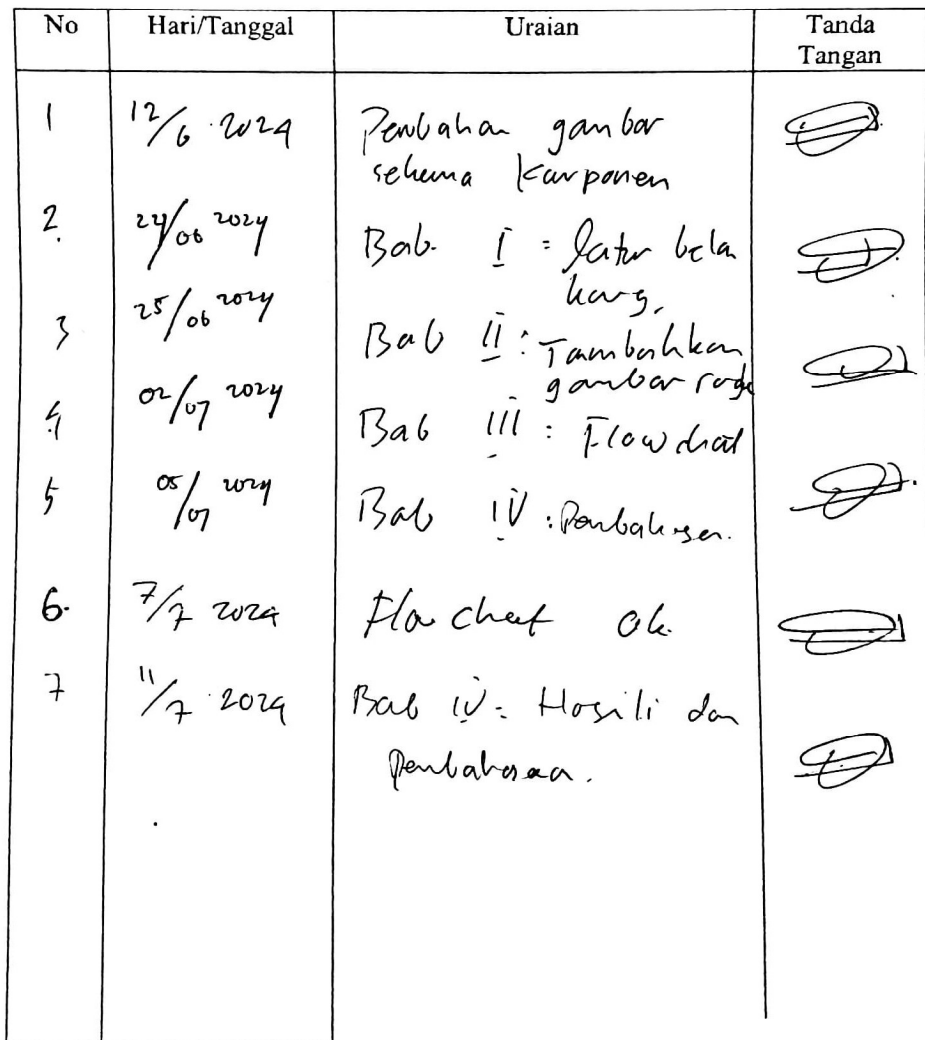 No Hari/Tanggal Uraian Tanda
Tangan
1 12/6 2024 Perubahan gambar
skema Komponen
2. 24/06 2024 Bab. I : latar bela
kang,
3 25/06 2024 Bab II : Tambahkan
gambar
4 02/07 2024 Bab III : Flowchat
5 05/07 2024 Bab IV : Pembahasan.
6. 7/7 2024 Flowchat Ok.
7 11/7 2024 Bab IV : Hasili dan
Pembahasan.